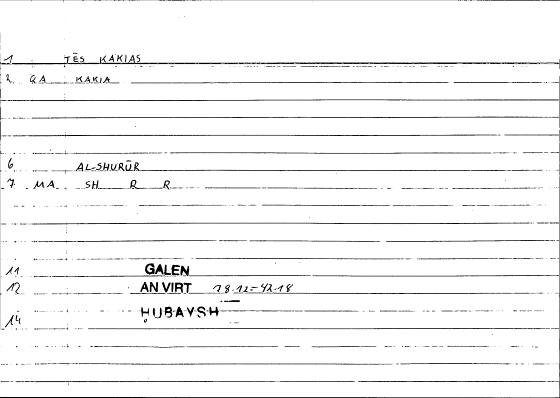 1 TĒS KAKIAS
2 QA KAKIA
6 AL-SHURŪR
7 MA SH R R
11 GALEN
12 AN VIRT 78.12=42.18
14 ḤUBAYSH